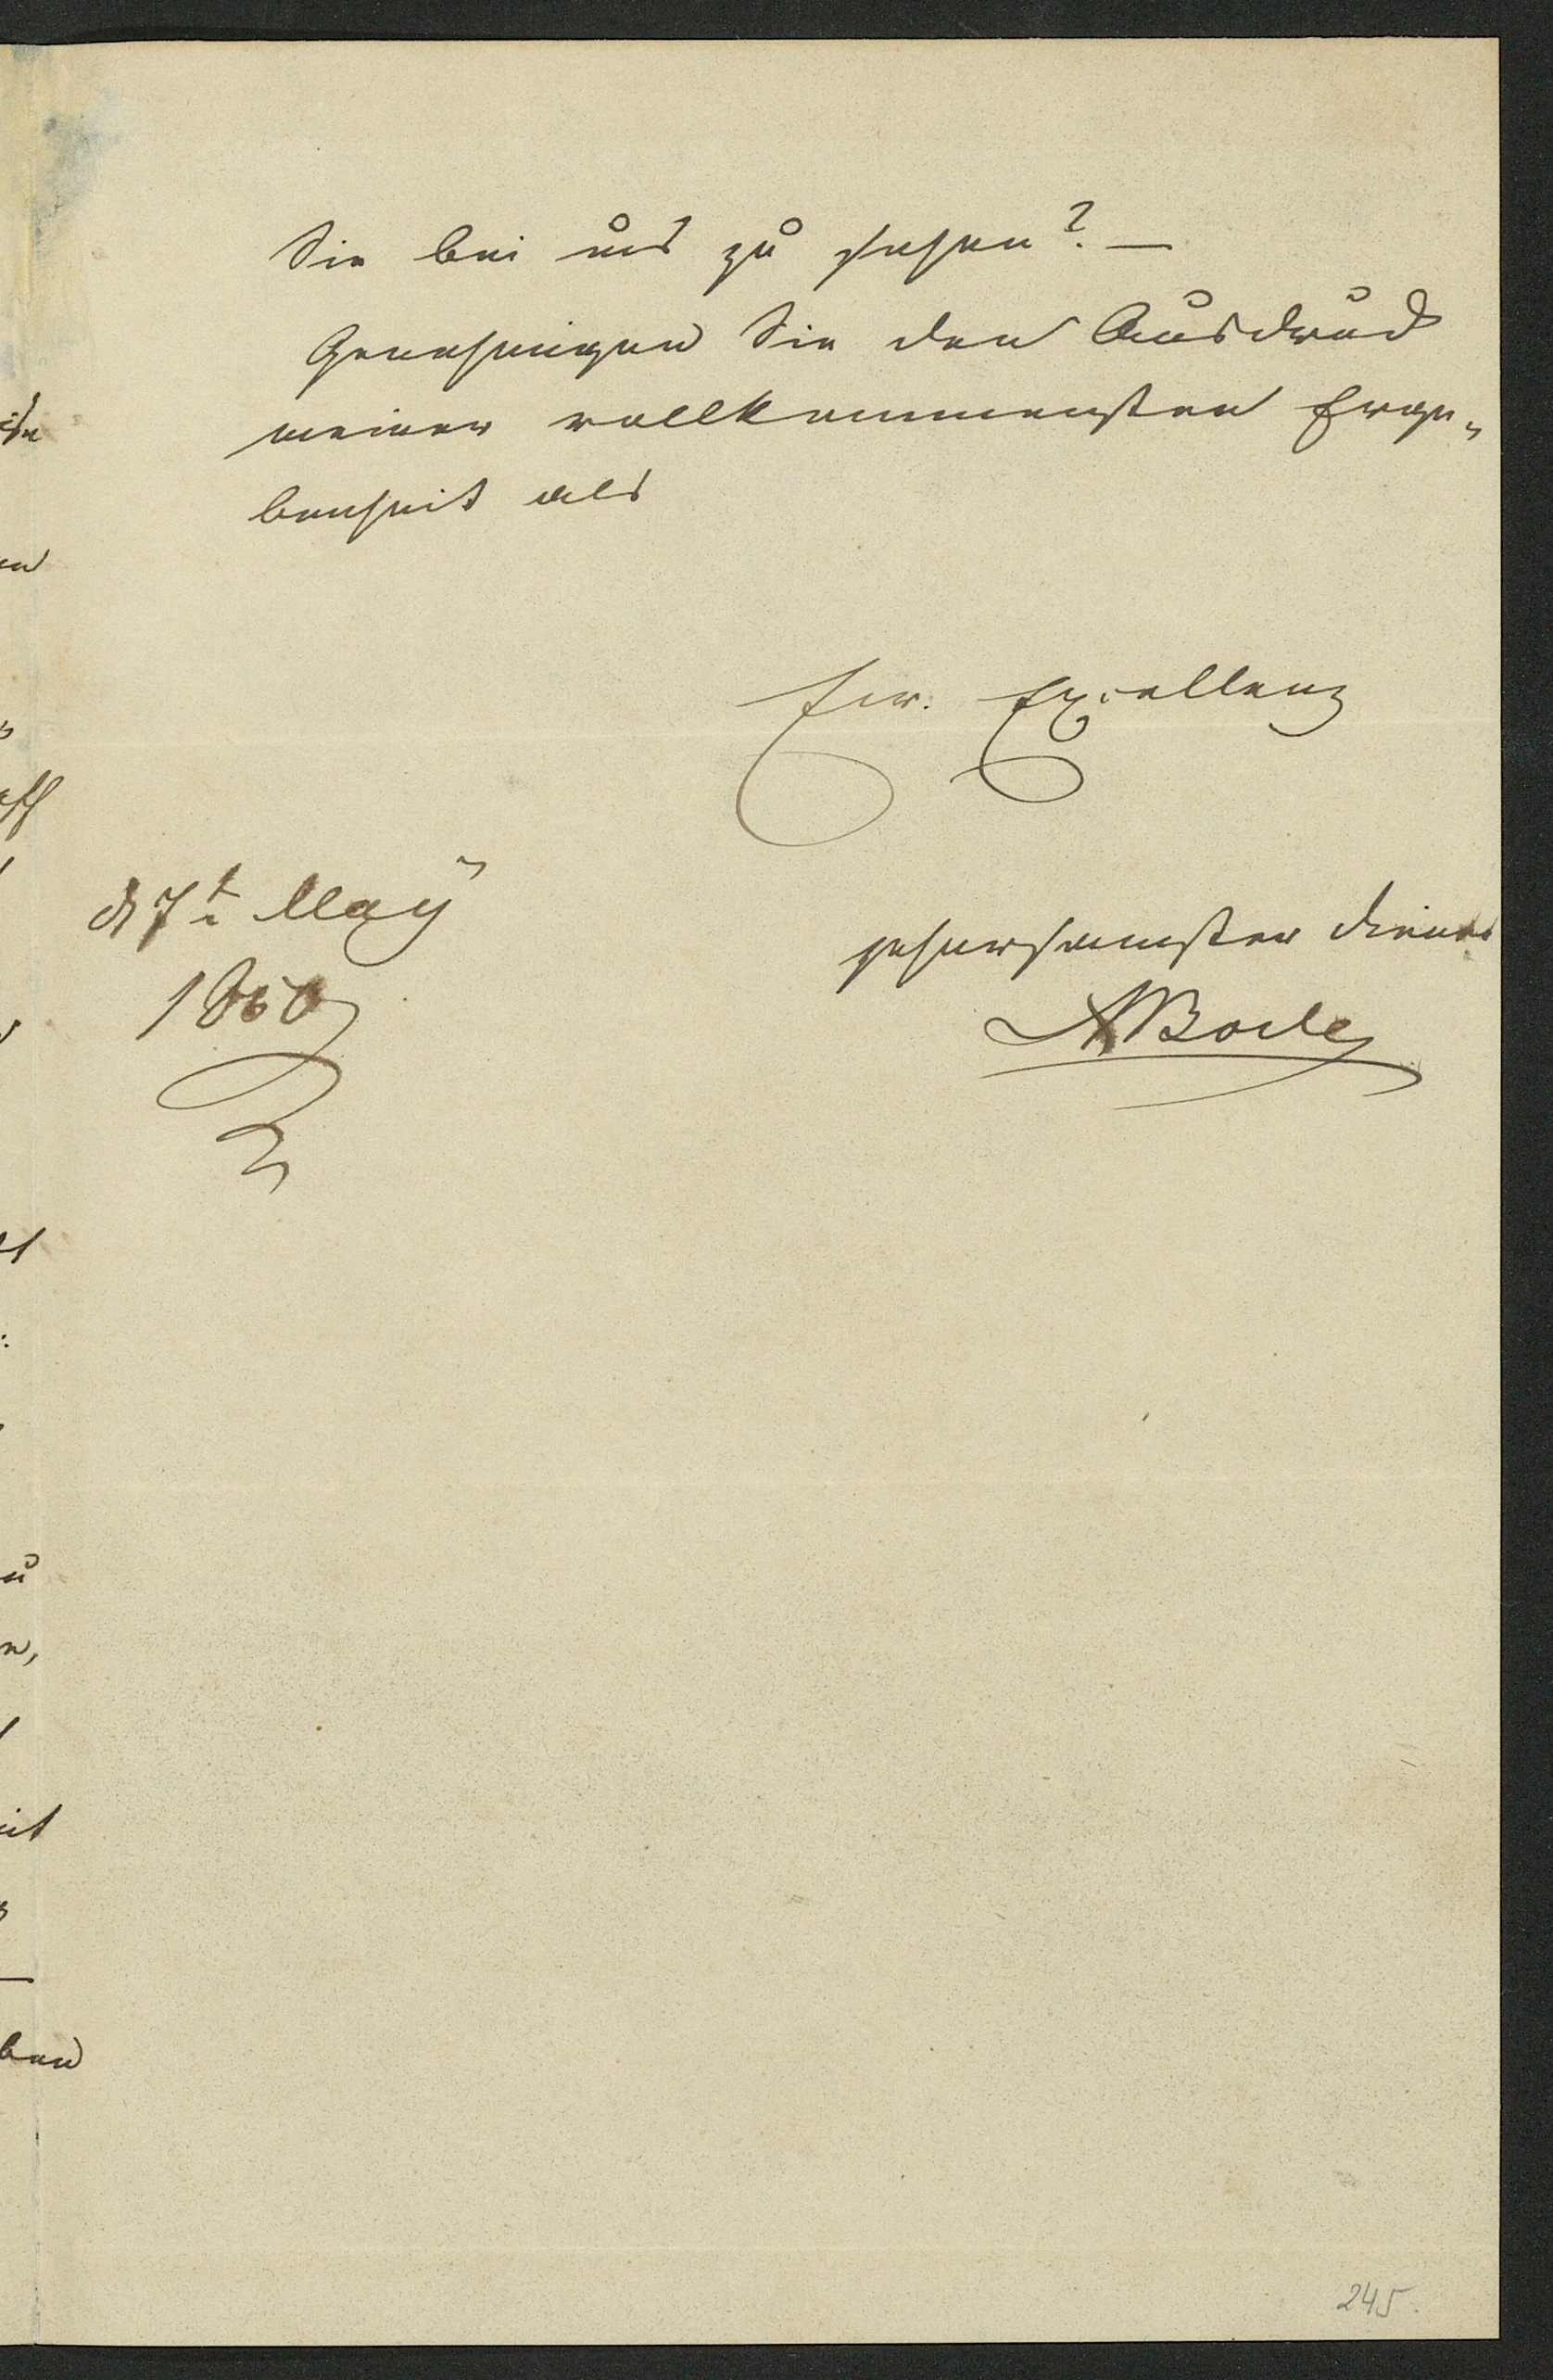 Sie bei uns zu sehen? —
Genehmigen Sie den Ausdruck
meiner vollkommensten Erge„
benheit als
Ew. Excellenz
d 7t May
1860
gehorsamster Diener
ABode
245.